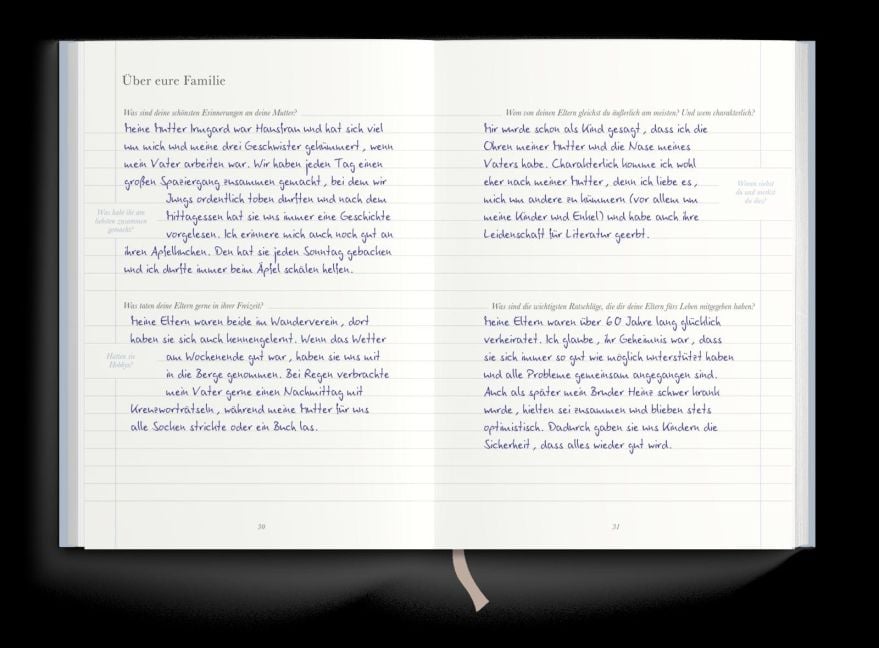 Über eure Familie
Was sind deine schönsten Erinnerungen an deine Mutter?
Meine Mutter Irmgard war Hausfrau und hat sich viel
um mich und meine drei Geschwister gekümmert, wenn
mein Vater arbeiten war. Wir haben jeden Tag einen
großen Spaziergang zusammen gemacht, bei dem wir
Jungs ordentlich toben durften und nach dem
Mittagessen hat sie uns immer eine Geschichte
vorgelesen. Ich erinnere mich auch noch gut an
ihren Apfelkuchen. Den hat sie jeden Sonntag gebacken
und ich durfte immer beim Äpfel schälen helfen.
Was habt ihr am
liebsten zusammen
gemacht?
Was taten deine Eltern gerne in ihrer Freizeit?
Meine Eltern waren beide im Wanderverein, dort
haben sie sich auch kennengelernt. Wenn das Wetter
am Wochenende gut war, haben sie uns mit
in die Berge genommen. Bei Regen verbrachte
mein Vater gerne einen Nachmittag mit
Kreuzworträtseln, während meine Mutter für uns
alle Socken strickte oder ein Buch las.
Hatten sie
Hobbys?
30
Wem von deinen Eltern gleichst du äußerlich am meisten? Und wem charakterlich?
Mir wurde schon als Kind gesagt, dass ich die
Ohren meiner Mutter und die Nase meines
Vaters habe. Charakterlich komme ich wohl
eher nach meiner Mutter, denn ich liebe es,
mich um andere zu kümmern (vor allem um
meine Kinder und Enkel) und habe auch ihre
Leidenschaft für Literatur geerbt.
Woran siehst
du und merkst
du dies?
Was sind die wichtigsten Ratschläge, die dir deine Eltern fürs Leben mitgegeben haben?
Meine Eltern waren über 60 Jahre lang glücklich
verheiratet. Ich glaube, ihr Geheimnis war, dass
sie sich immer so gut wie möglich unterstützt haben
und alle Probleme gemeinsam angegangen sind.
Auch als später mein Bruder Heinz schwer krank
wurde, hielten sei zusammen und blieben stets
optimistisch. Dadurch gaben sie uns Kindern die
Sicherheit, dass alles wieder gut wird.
31